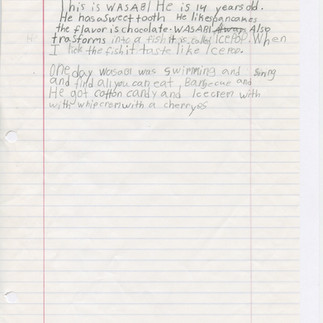 This is WASABI He is 14 years old.
He has a sweet tooth He likes pancakes
the flavor is chocolate. WASABI Also
trasforms into a fish it is called Icepop. When
I lick the fish it taste like Icepop.
One day Wasabi was swimming and
and find all you can eat, Barbecue and
He got cotton candy and Icecren with
with whipcren with a cherry